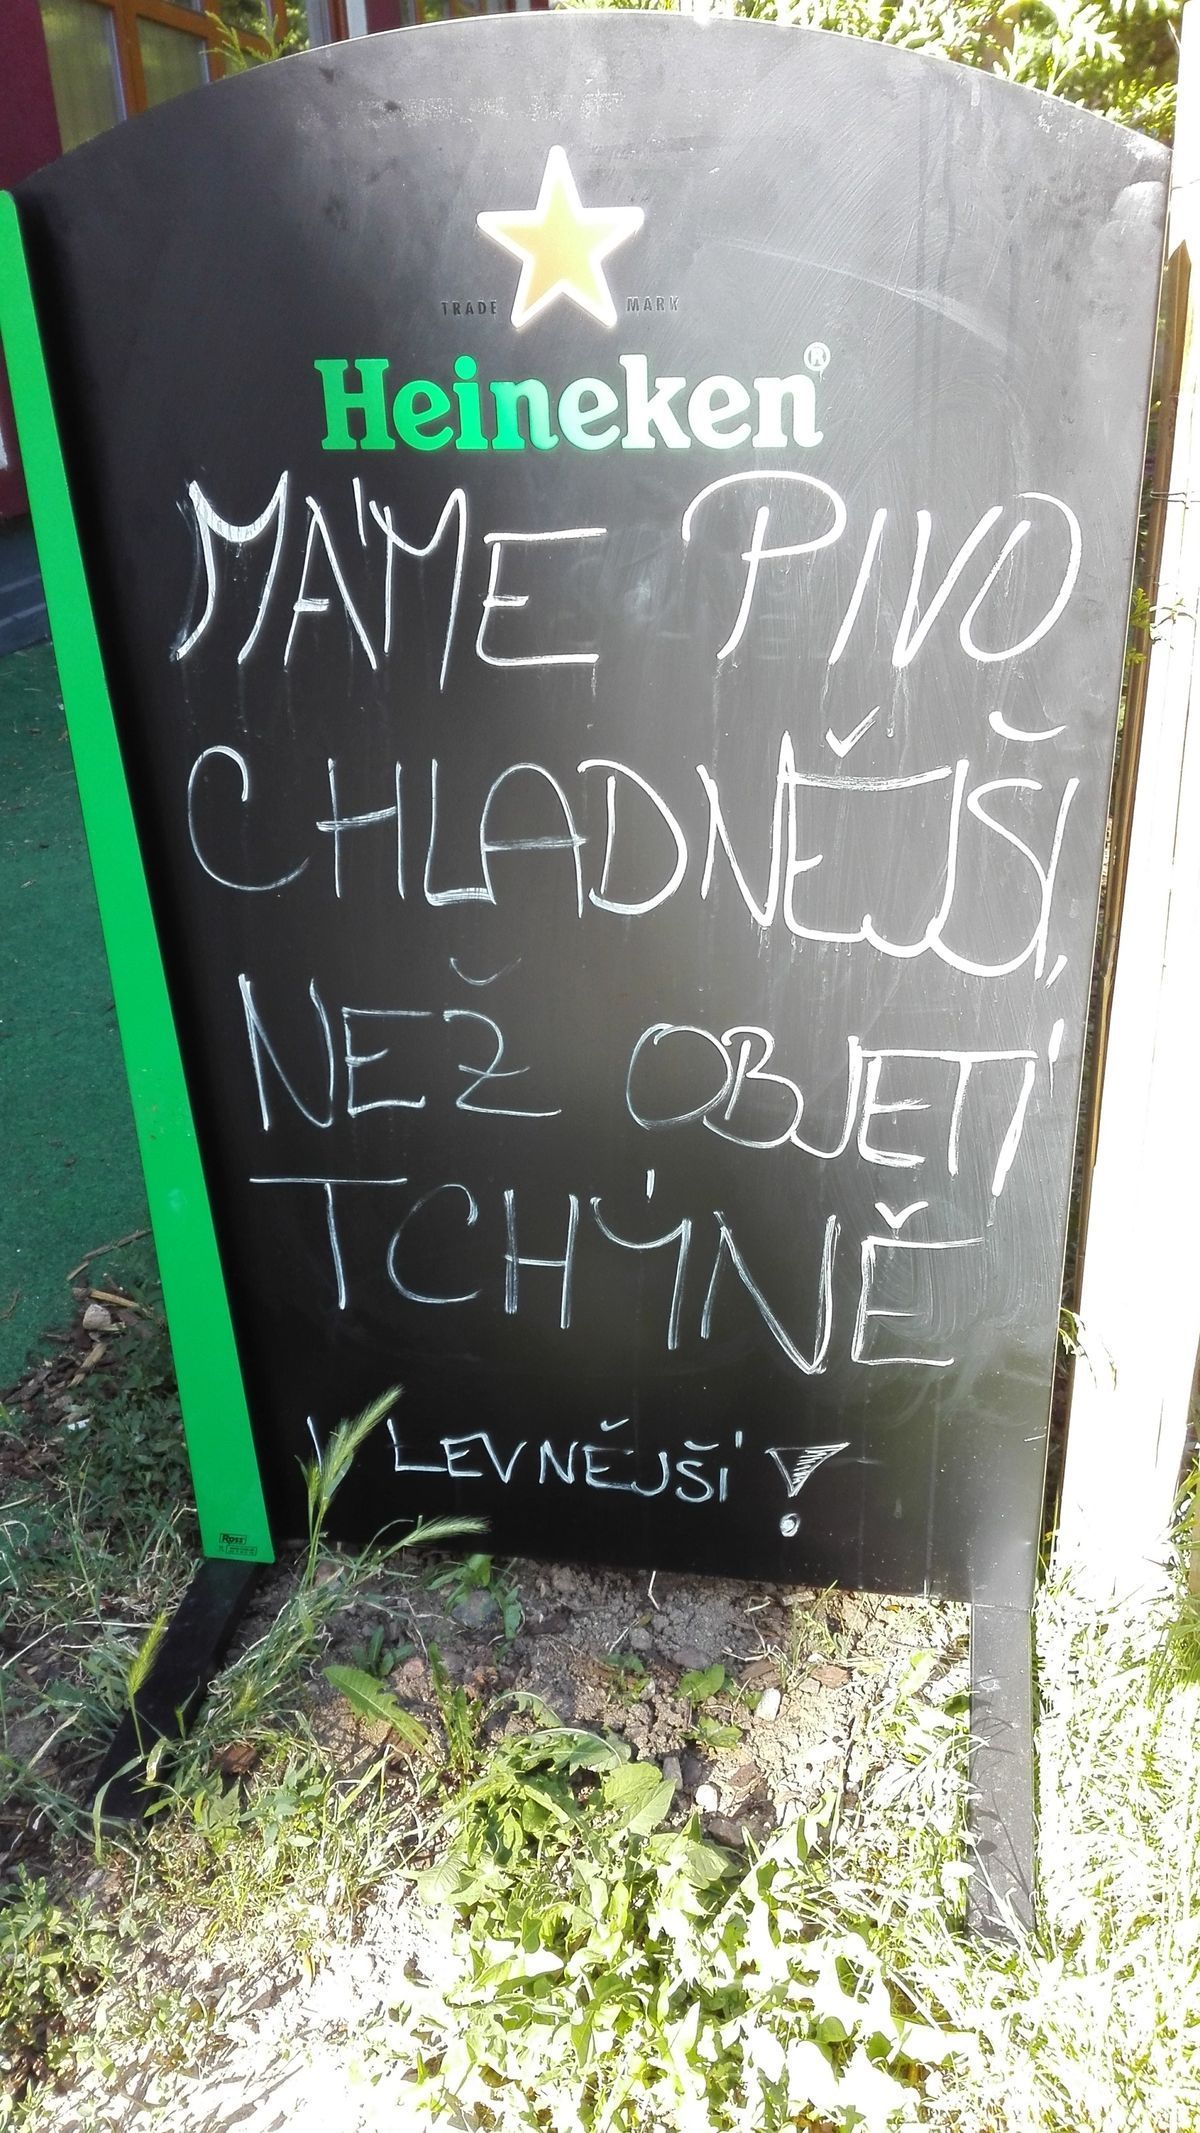 TRADE MARK
Heineken®
MÁME PIVO
CHLADNĚJŠÍ,
NEŽ OBJETÍ
TCHÝNĚ
I LEVNĚJŠÍ!
ROSS